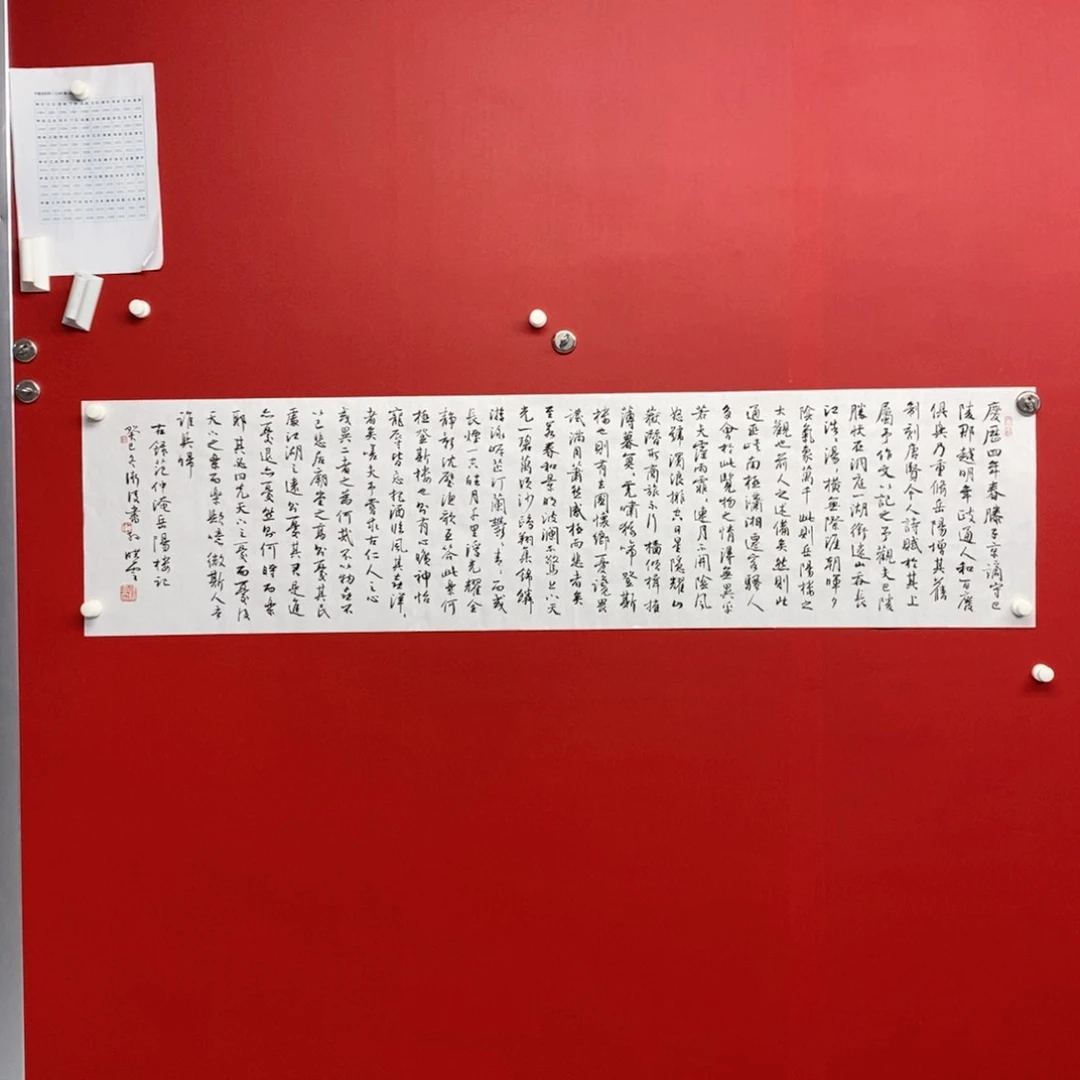 慶曆四年春滕子京謫守巴
陵郡越明年政通人和百廢
俱興乃重修岳陽增其舊
制刻唐賢今人詩賦於其上
屬予作文以記之予觀夫巴陵
勝狀在洞庭一湖銜遠山吞長
江浩〻湯〻橫無際涯朝暉夕
陰氣象萬千此則岳陽樓之
大觀也前人之述備矣然則北
通巫峽南極瀟湘遷客騷人
多會於此覽物之情得無異乎
若夫霪雨霏〻連月不開陰風
怒號濁浪排空日星隱耀山
嶽潛形商旅不行檣傾楫摧
薄暮冥〻虎嘯猿啼登斯
樓也則有去國懷鄉憂讒畏
譏滿目蕭然感極而悲者矣
至若春和景明波瀾不驚上下天
光一碧萬頃沙鷗翔集錦鱗
游泳岸芷汀蘭鬱〻青〻而或
長煙一空皓月千里浮光耀金
靜影沈璧漁歌互答此樂何
極登斯樓也則有心曠神怡
寵辱皆忘把酒臨風其喜洋〻
者矣嗟夫予嘗求古仁人之心
或異二者之為何哉不以物喜不
以己悲居廟堂之高則憂其民
處江湖之遠則憂其君是進
亦憂退亦憂然則何時而樂
耶其必曰先天下之憂而憂後
天下之樂而樂歟噫微斯人吾
誰與歸
右錄范仲淹岳陽樓記
癸巳冬